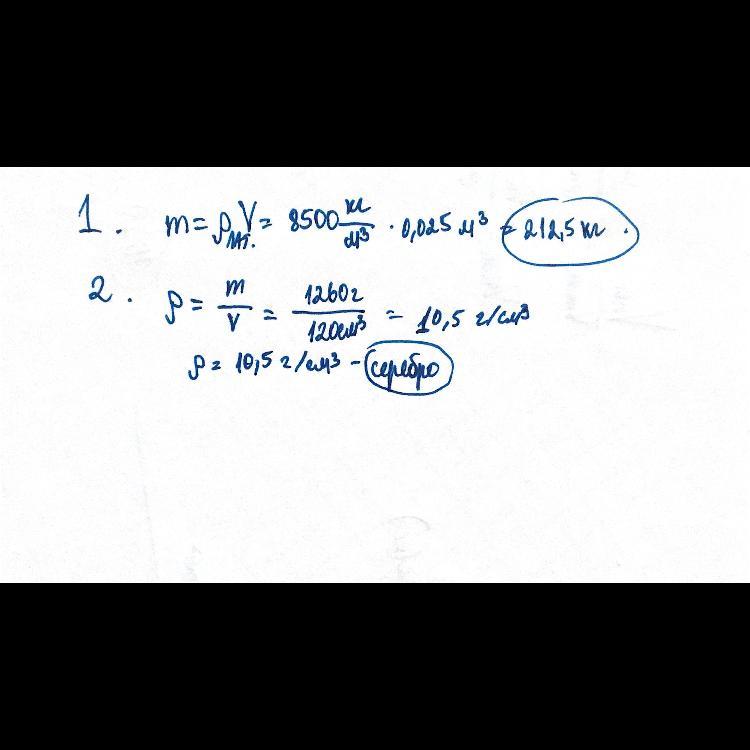 1. m = ρлат. V = 8500 кг/м³ · 0,025 м³ = 212,5 кг.
2. ρ = m/V = 1260г/120см³ = 10,5 г/см³
ρ = 10,5 г/см³ - серебро